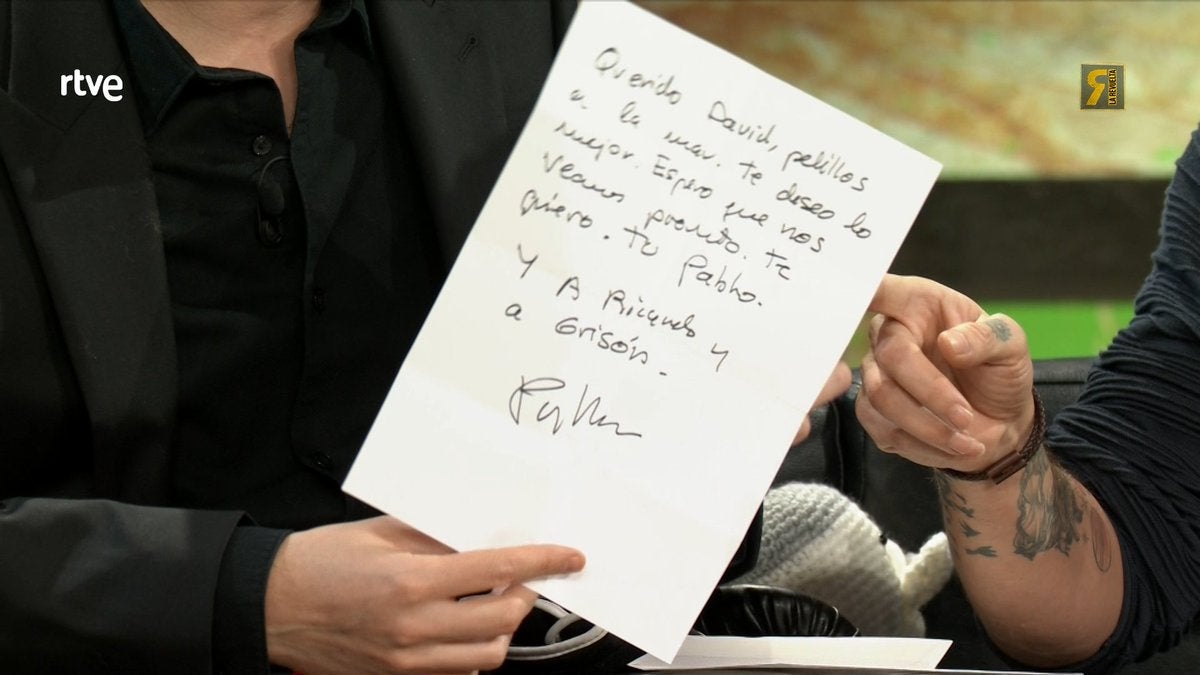 rtve
LA REVUELTA
Querido David, pelillos
a la mar. te deseo lo
mejor. Espero que nos
veamos pronto. te
quiero. tu Pabho.
Y A Ricardo y
a Grisón.